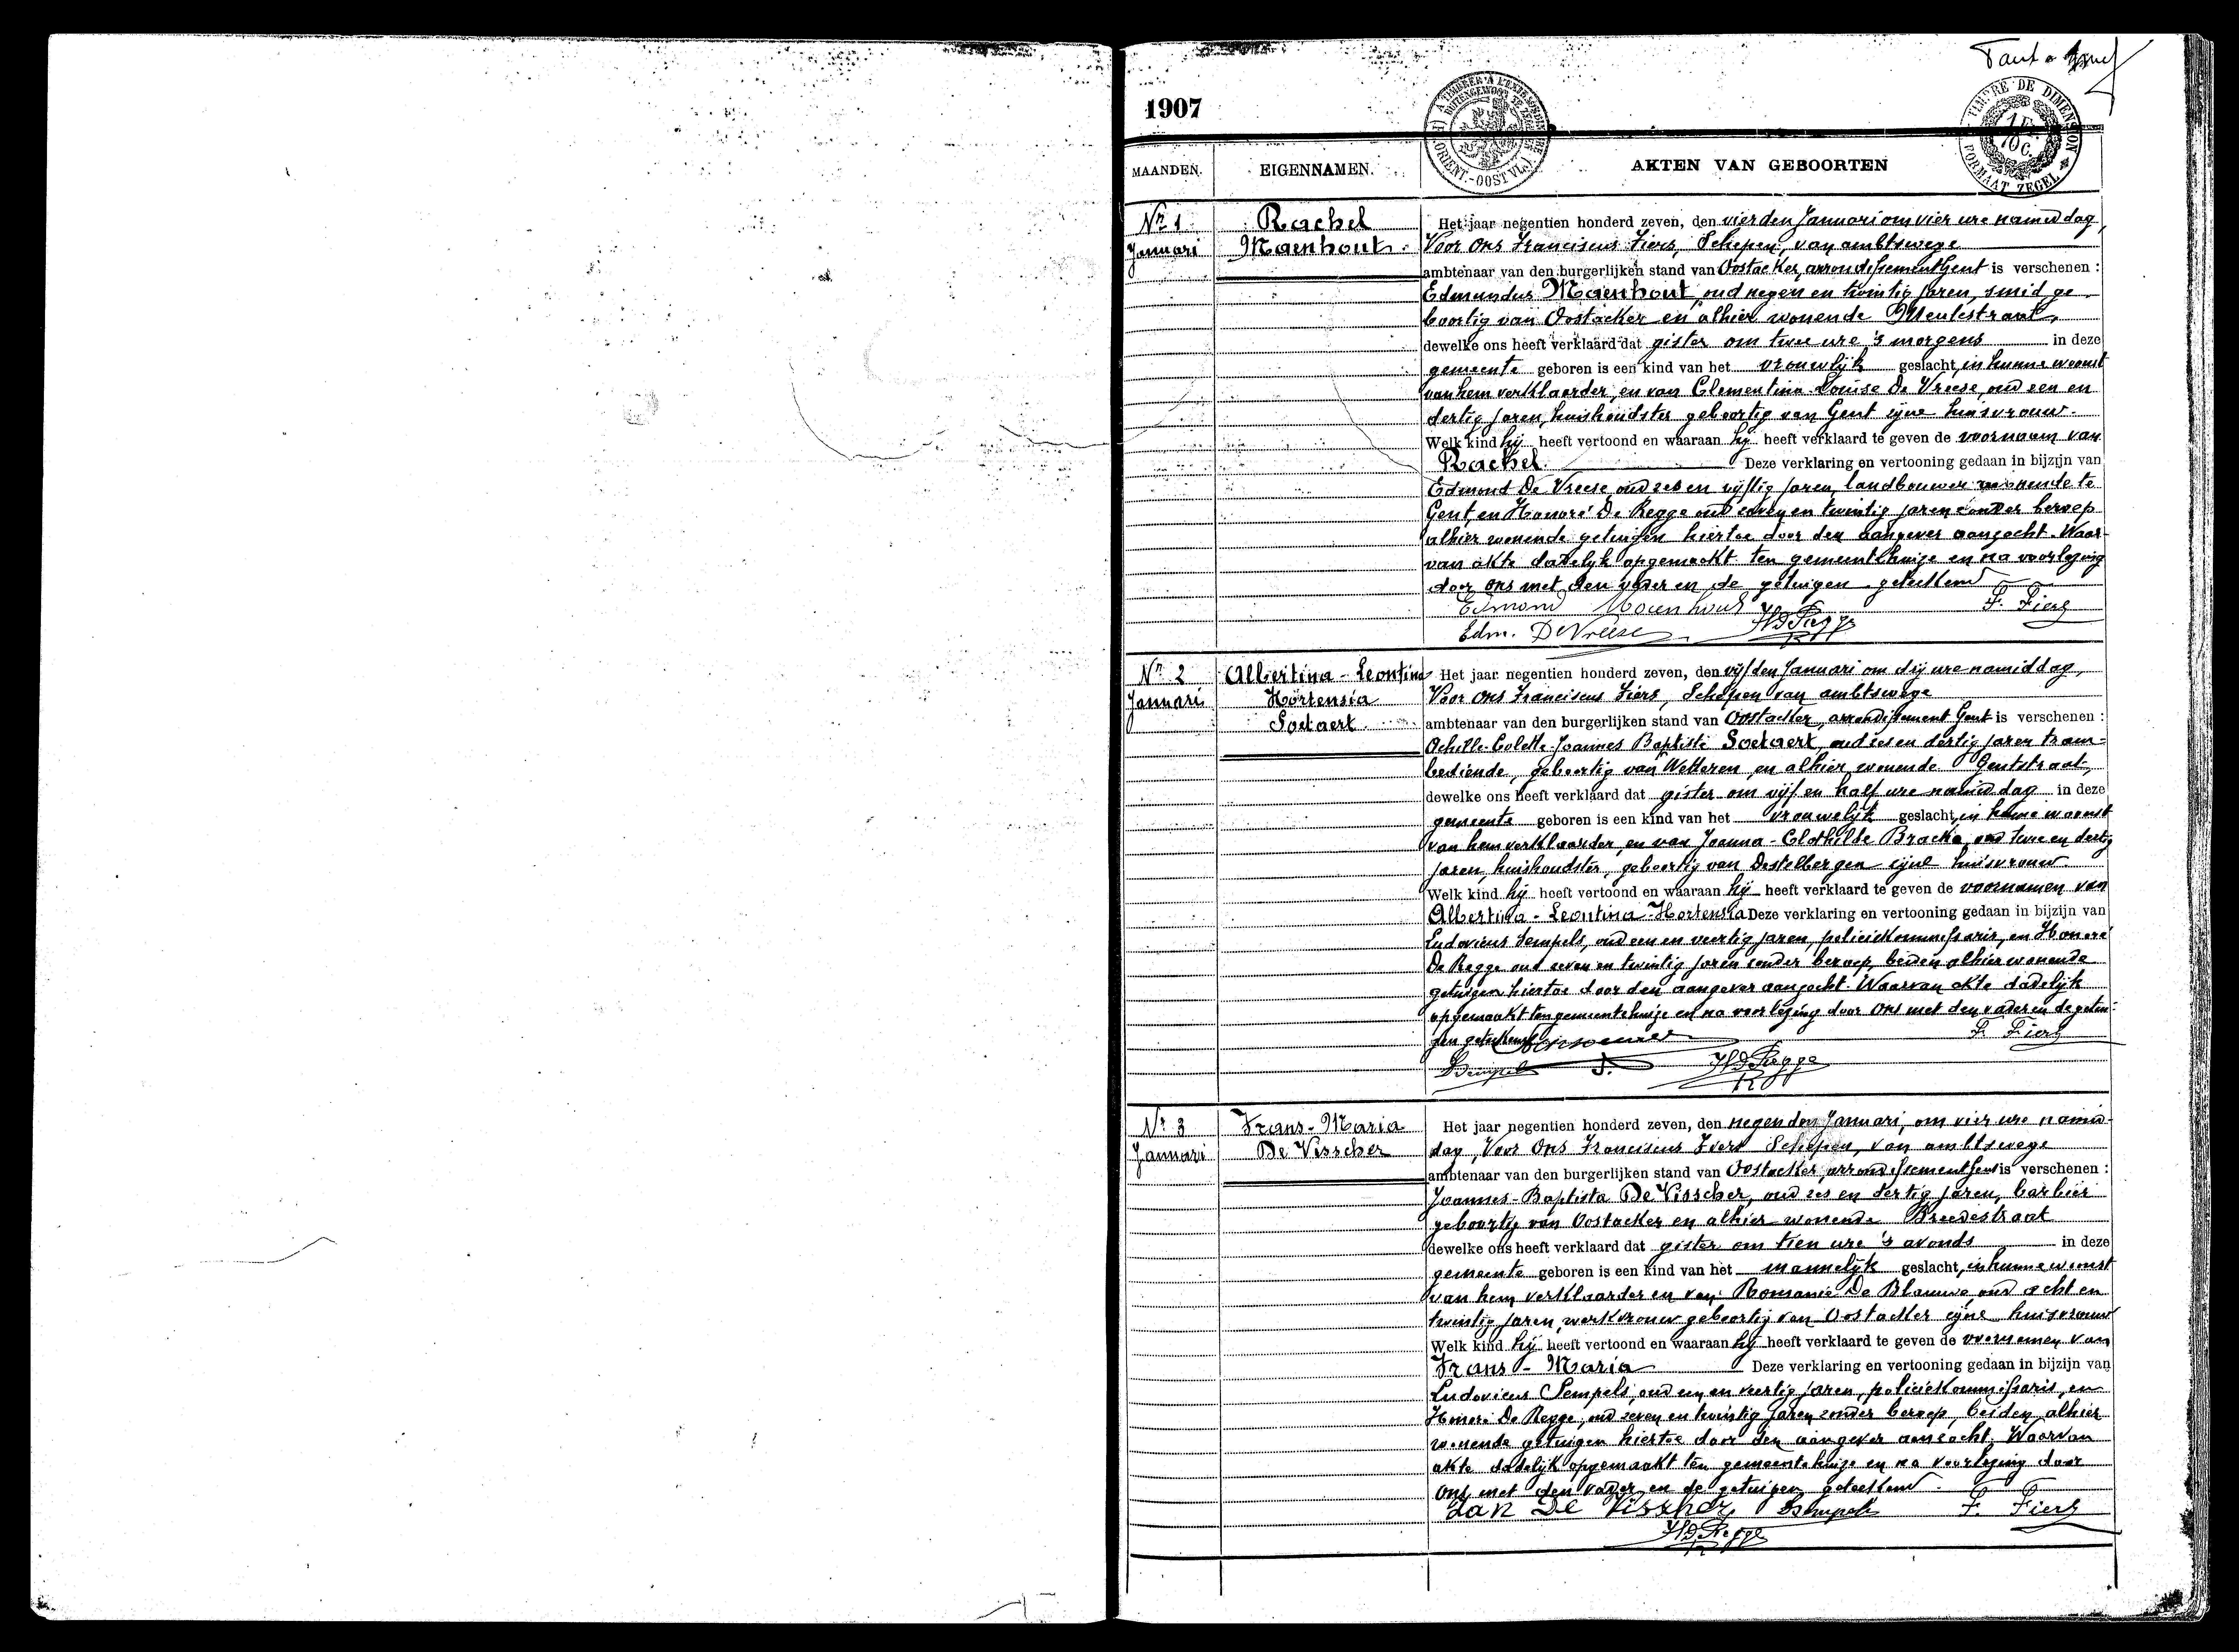 1907
MAANDEN. EIGENNAMEN. AKTEN VAN GEBOORTEN
A TIMBRER A L'EXTRAORDINAIRE
BUITENGEWOON TE ZEGELEN
ORIENT.-OOST VL.
TIMBRE DE DIMENSION
1 Fr. 10 C.
FORMAAT ZEGEL
Nr 1
Januari
Rachel
Maenhout
Het jaar negentien honderd zeven, den vierden Januari om vier ure namiddag,
Voor Ons Franciscus Fiers, Schepen, van ambtswege
ambtenaar van den burgerlijken stand van Oostacker, arrondissement Gent is verschenen :
Edmundus Maenhout, oud negen en twintig jaren, smid ge-
boortig van Oostacker en alhier wonende Meulestraat,
dewelke ons heeft verklaard dat gister om twee ure 's morgens in deze
gemeente geboren is een kind van het vrouwlijk geslacht, in hunne woonst
van hem verklaarder, en van Clementina Louise De Vreese, oud een en
dertig jaren, huishoudster geboortig van Gent zijne huisvrouw.
Welk kind hij heeft vertoond en waaraan hij heeft verklaard te geven de voornaam van
Rachel. Deze verklaring en vertooning gedaan in bijzijn van
Edmond De Vreese oud zes en vijftig jaren, landbouwer wonende te
Gent, en Honoré De Regge oud zeven en twintig jaren zonder beroep
alhier wonende getuigen hiertoe door den aangever aanzocht. Waar-
van akte dadelijk opgemaakt ten gemeentehuize en na voorlezing
door ons met den vader en de getuigen geteekend
Edmond Maenhout HD Regge F. Fiers
Edm. De Vreese
Nr 2
Januari
Albertina - Leontina
Hortensia
Soetaert.
Het jaar negentien honderd zeven, den vijfden Januari om drij ure namiddag,
Voor Ons Franciscus Fiers, Schepen van ambtswege
ambtenaar van den burgerlijken stand van Oostacker, arrondissement Gent is verschenen :
Achille-Colette-Joannes Baptiste Soetaert, oud zes en dertig jaren tram-
bediende, geboortig van Wetteren, en alhier wonende Gentstraat,
dewelke ons heeft verklaard dat gister om vijf en half ure namiddag in deze
gemeente geboren is een kind van het vrouwelijk geslacht, in hunne woonst
van hem verklaarder, en van Joanna-Clothilde Bracke, oud twee en dertig
jaren, huishoudster, geboortig van Destelbergen zijne huisvrouw.
Welk kind hij heeft vertoond en waaraan hij heeft verklaard te geven de voornamen van
Albertina - Leontina - Hortensia Deze verklaring en vertooning gedaan in bijzijn van
Ludovicus Sempels, oud een en veertig jaren, policiekommissaris, en Honoré
De Regge oud zeven en twintig jaren zonder beroep, beiden alhier wonende
getuigen hiertoe door den aangever aanzocht. Waarvan akte dadelijk
opgemaakt ten gemeentehuize en na voorlezing door Ons met den vader en de getui-
gen geteekend F. Fiers
Sempels HD Regge
Nr 3
Januari
Frans - Maria
De Visscher
Het jaar negentien honderd zeven, den negenden Januari, om vier ure namid-
dag, Voor Ons Franciscus Fiers Schepen, van ambtswege
ambtenaar van den burgerlijken stand van Oostacker, arrondissement Gent is verschenen :
Joannes-Baptista De Visscher, oud zes en dertig jaren, barbier
geboortig van Oostacker en alhier wonende Breedestraat
dewelke ons heeft verklaard dat gister om tien ure 's avonds in deze
gemeente geboren is een kind van het mannelijk geslacht, in hunne woonst
van hem verklaarder en van Romanie De Blauwe, oud acht en
twintig jaren, werkvrouw geboortig van Oostacker zijne huisvrouw
Welk kind hij heeft vertoond en waaraan hij heeft verklaard te geven de voornamen van
Frans - Maria Deze verklaring en vertooning gedaan in bijzijn van
Ludovicus Sempels, oud een en veertig jaren, policiekommissaris, en
Honoré De Regge, oud zeven en twintig jaren zonder beroep, beiden alhier
wonende getuigen hiertoe door den aangever aanzocht. Waarvan
akte dadelijk opgemaakt ten gemeentehuize en na voorlezing door
Ons met den vader en de getuigen geteekend.
Jan De Visscher Sempels F. Fiers
HD Regge